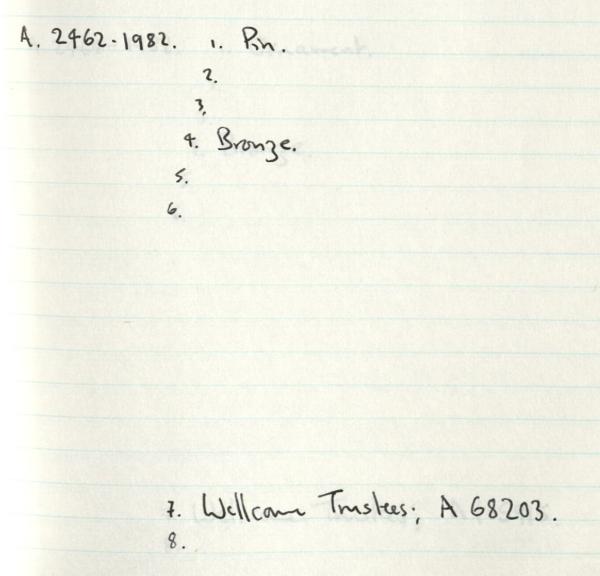 A. 2462-1982. 1. Pin.
2.
3.
4. Bronze.
5.
6.
7. Wellcome Trustees; A 68203.
8.